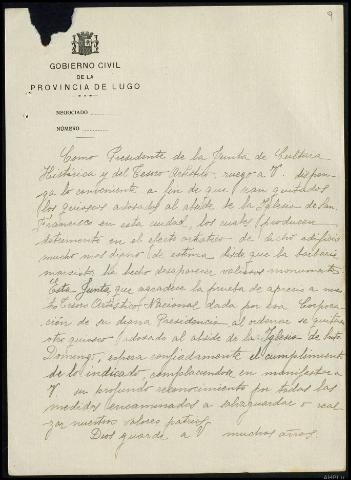 9
GOBIERNO CIVIL
DE LA
PROVINCIA DE LUGO
NEGOCIADO
NÚMERO
Como Presidente de la Junta de Cultura
Histórica y del Tesoro Artístico, ruego a V. dispon-
ga lo conveniente a fin de que sean quitados
los quioscos adosados al ábside de la Iglesia de San
Francisco en esta ciudad, los cuales producen
detrimento en el efecto artístico de dicho edificio
mucho mas digno de estima desde que la barbarie
marxista ha hecho desaparecer valiosos monumentos
Esta Junta que agradece la prueba de aprecio a nues-
tro Tesoro Artístico Nacional dada por esa Corpora-
ción de su digna Presidencia al ordenar se quitara
otro quiosco adosado al ábside de la Iglesia de Santo
Domingo, espera confiadamente el cumplimiento
de lo indicado, complaciendose en manifestar a
V. su profundo reconocimiento por todas las
medidas encaminadas a salvaguardar o real-
zar nuestros valores patrios.
Dios guarde a V. muchos años.